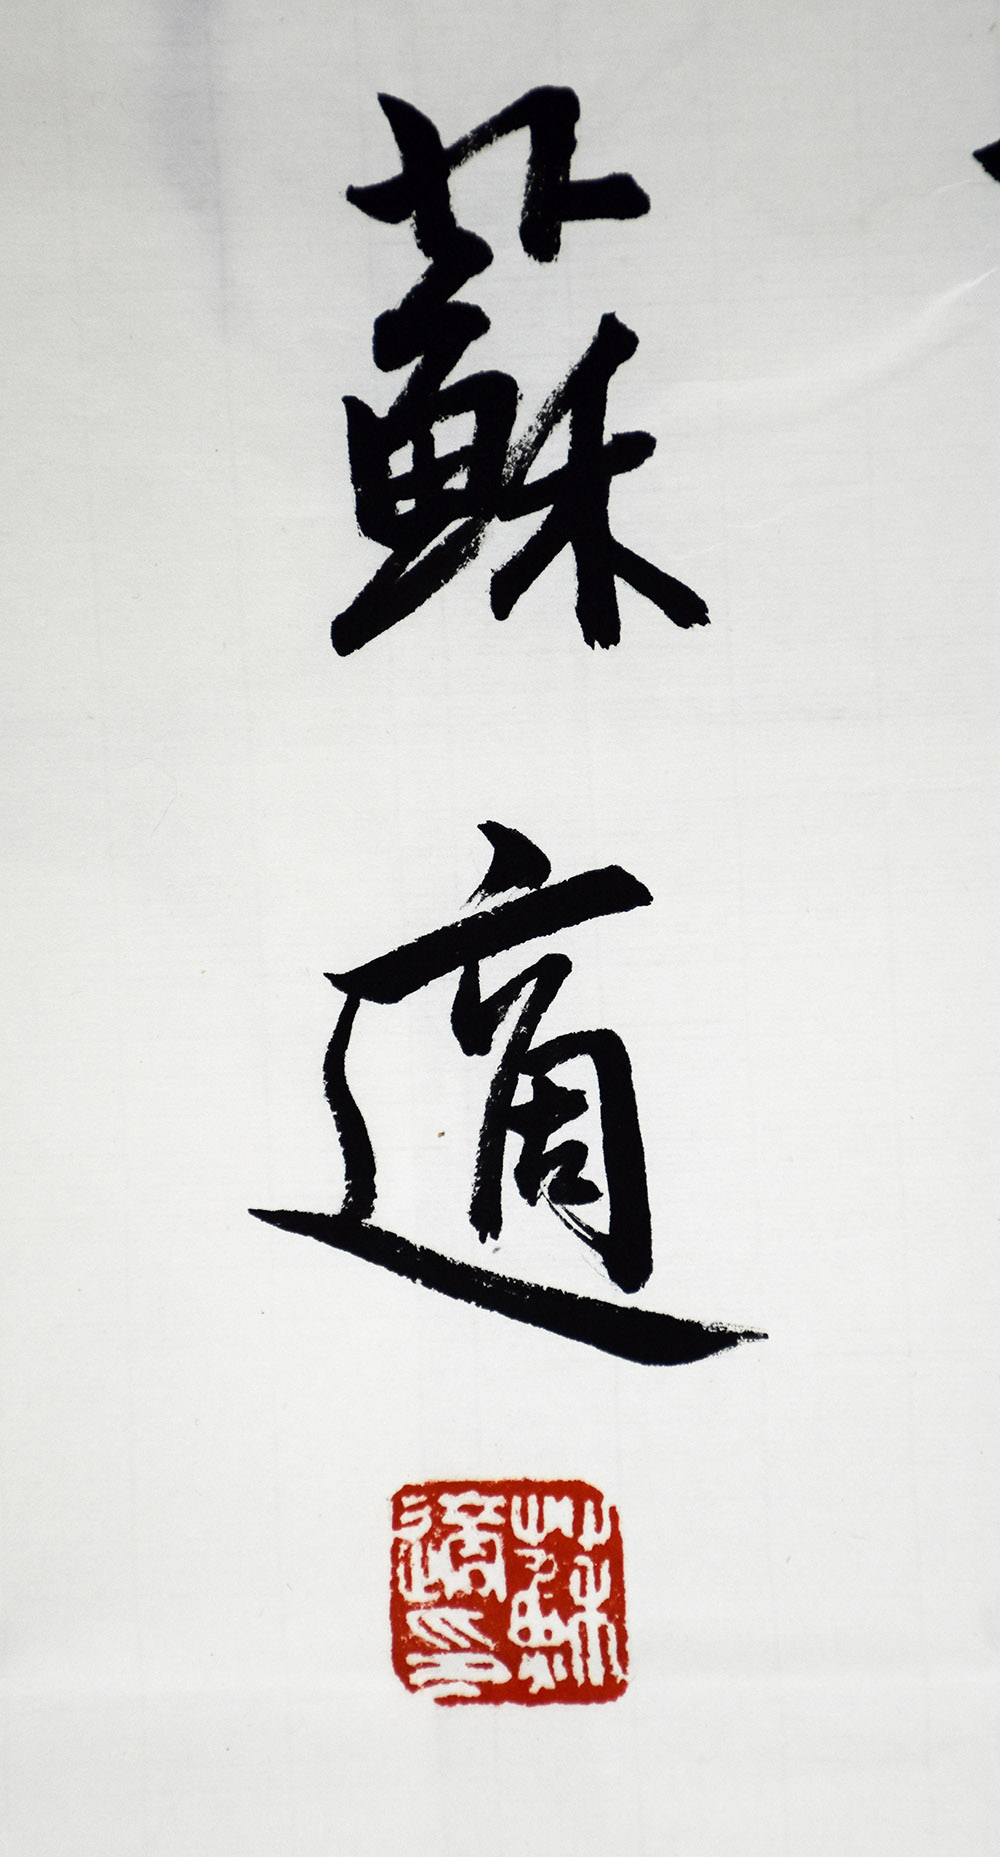 蘇適
蘇適印